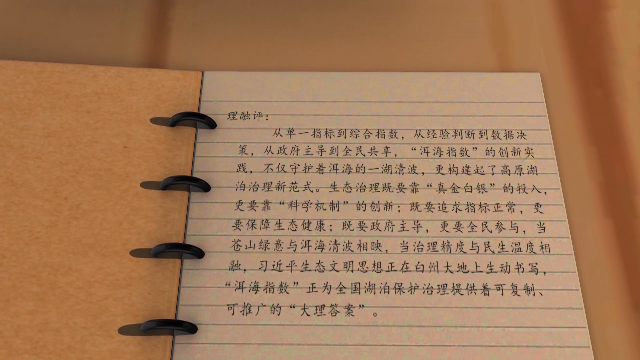 理融评：
从单一指标到综合指数，从经验判断到数据决
策，从政府主导到全民共享，“洱海指数”的创新实
践，不仅守护着洱海的一湖清波，更构建起了高原湖
泊治理新范式。生态治理既要靠“真金白银”的投入，
更要靠“科学机制”的创新；既要追求指标正常，更
要保障生态健康；既要政府主导，更要全民参与，当
苍山绿意与洱海清波相映，当治理精度与民生温度相
融，习近平生态文明思想正在白州大地上生动书写，
“洱海指数”正为全国湖泊保护治理提供着可复制、
可推广的“大理答案”。